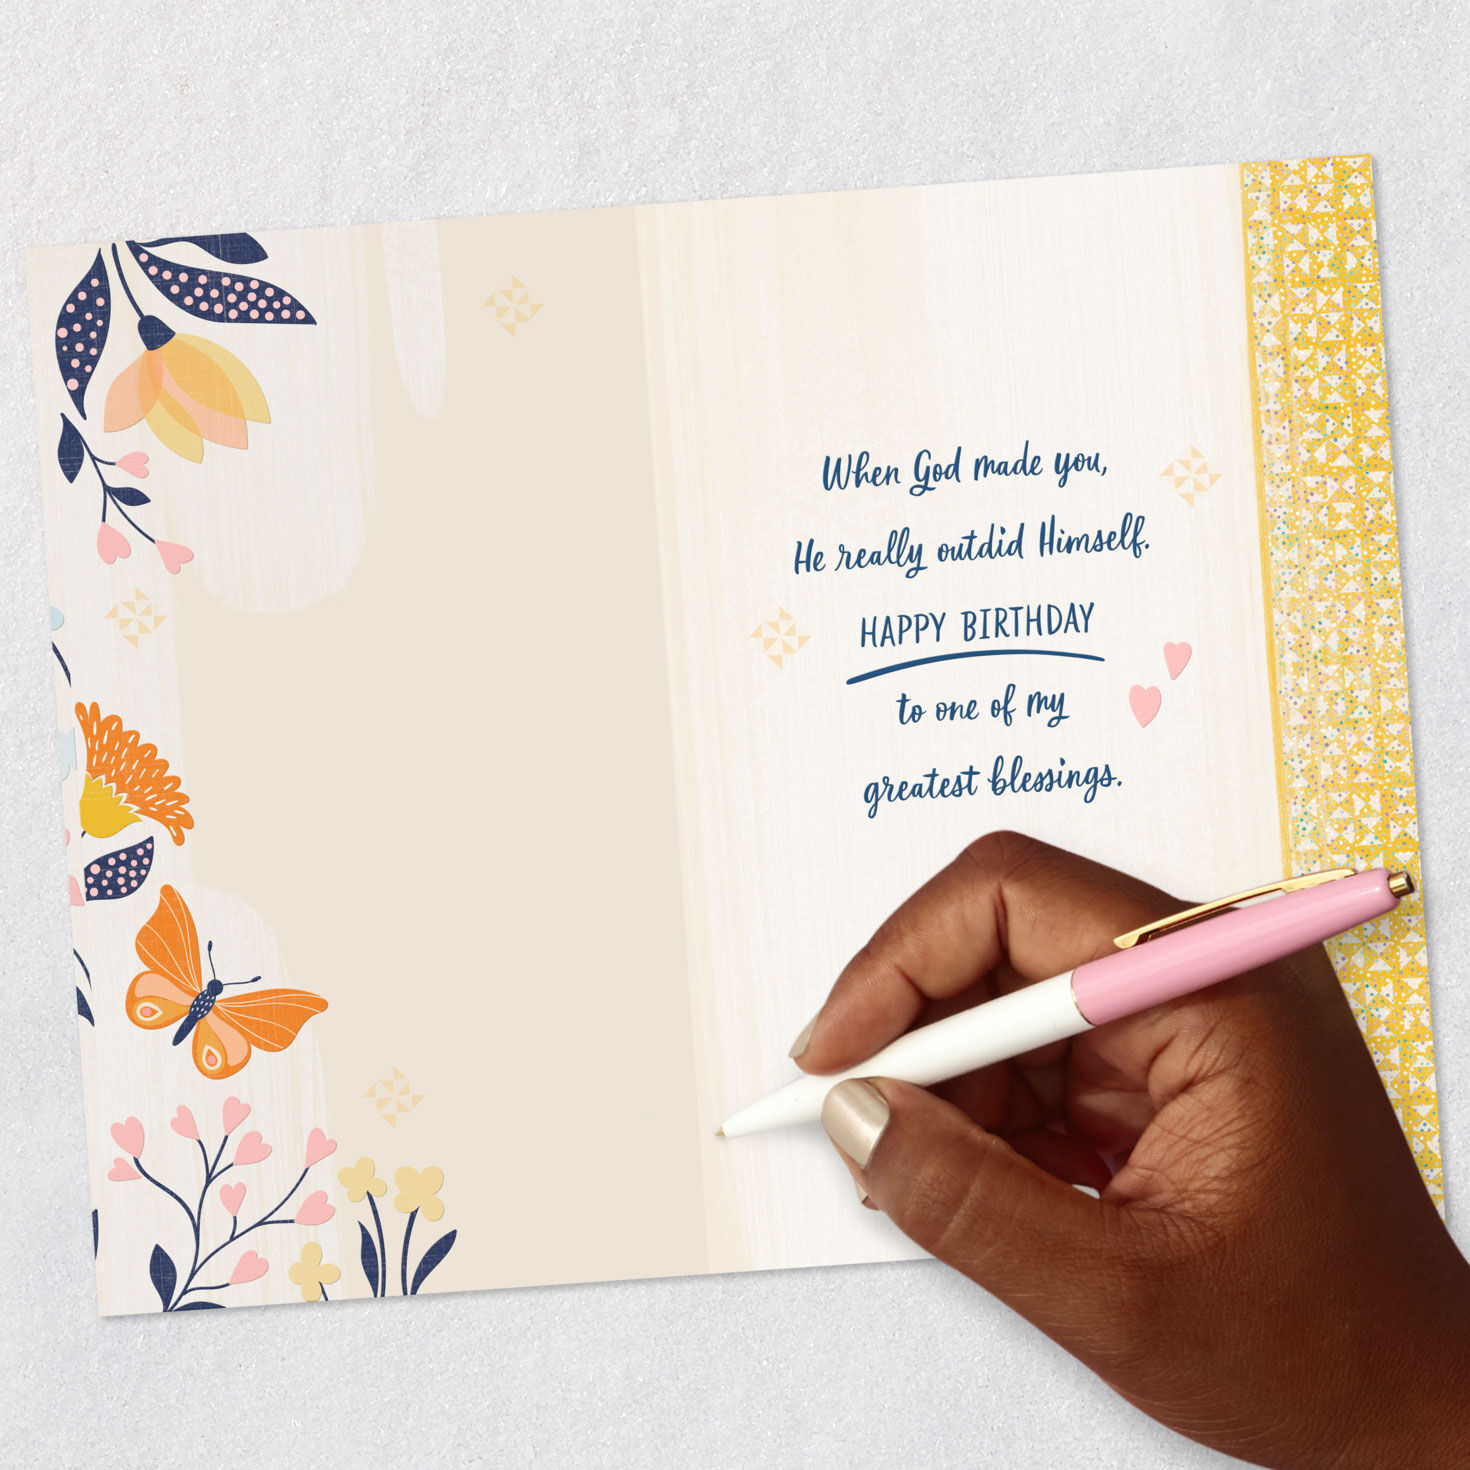 When God made you,
He really outdid Himself.
HAPPY BIRTHDAY
to one of my
greatest blessings.